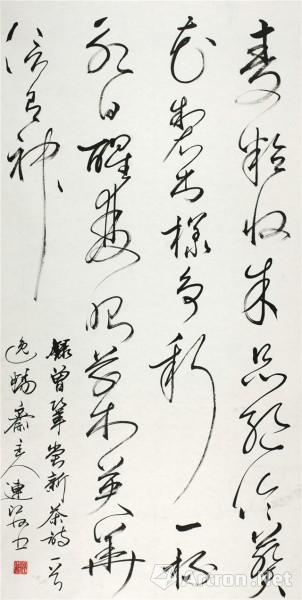 麥粒收来品絶倫葵
花製出樣争新一杯
永日醒雙眼草木英華
信有神
録曾鞏嘗新茶詩一首
逸暢齋主人連
Artron.Net